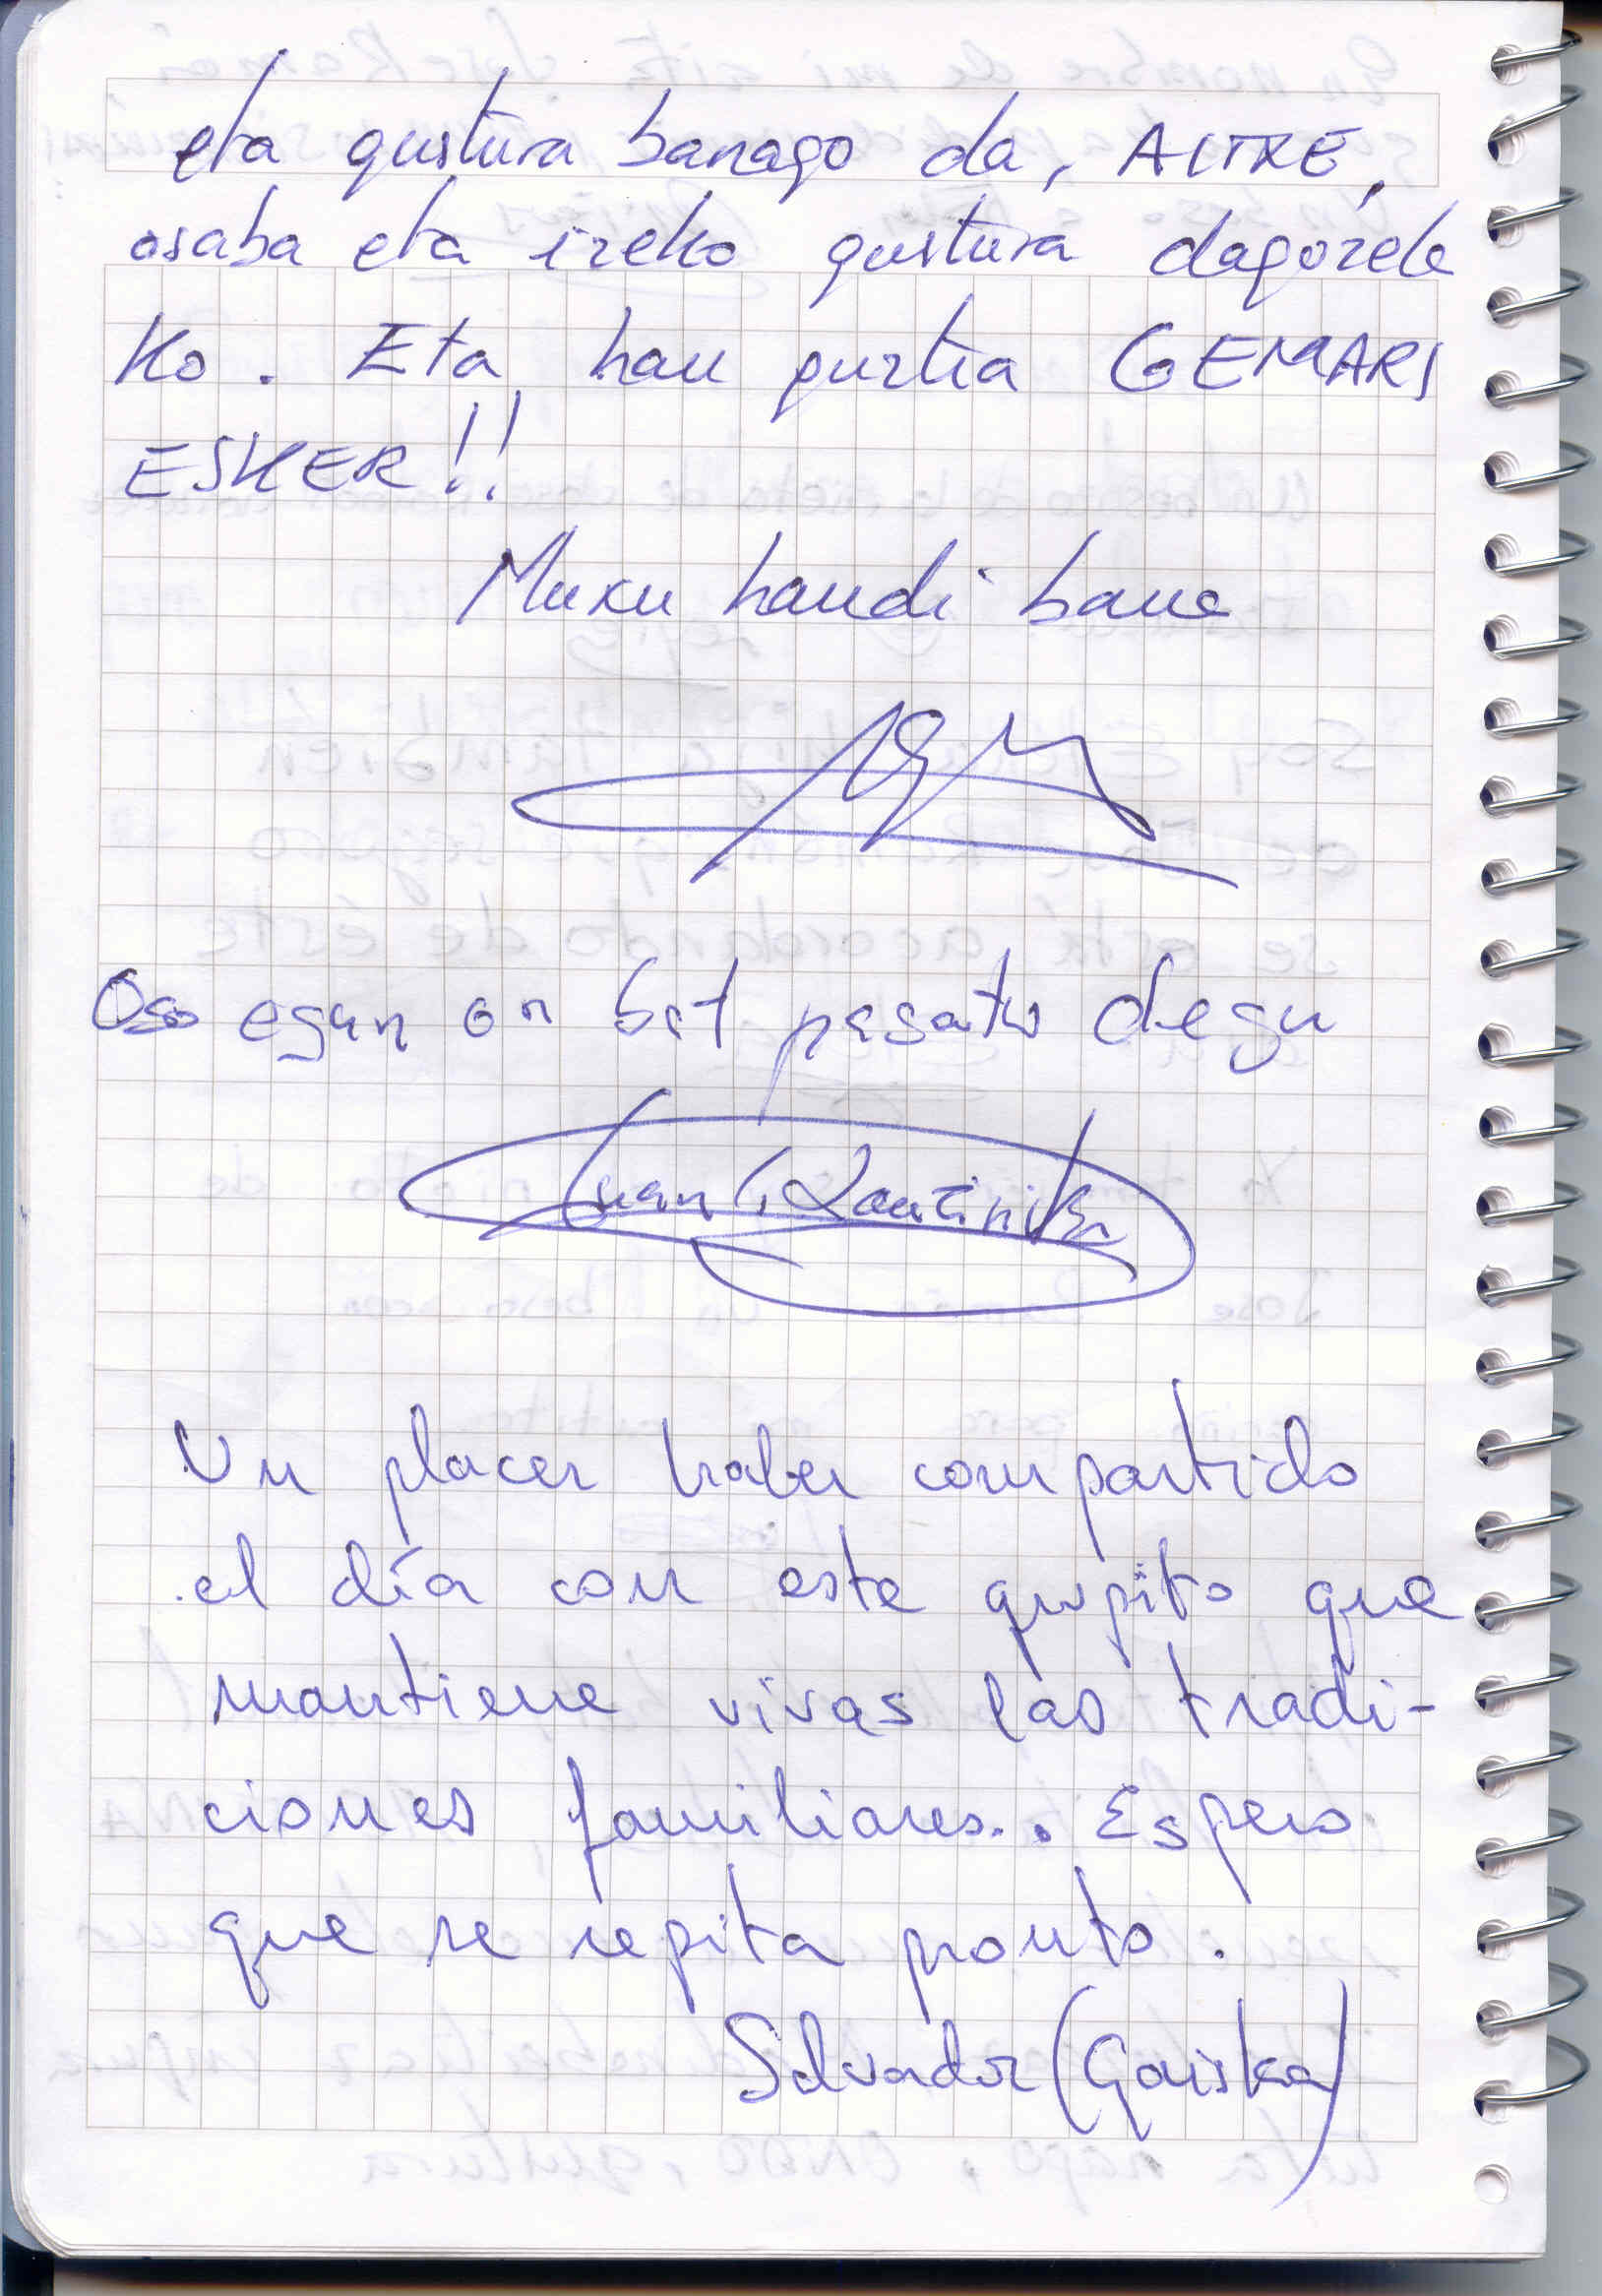 eta gustura banago da, AITXE,
osaba eta izeko gustura dagozela
ko. Eta hau guztia GEMARI
ESKER!!
Muxu handi bana
Oso egun on bat pasatu degu
Juan
Un placer haber compartido
el día con este grupito que
mantiene vivas las tradi-
ciones familiares.. Espero
que se repita pronto.
Salvador (Gaiska)